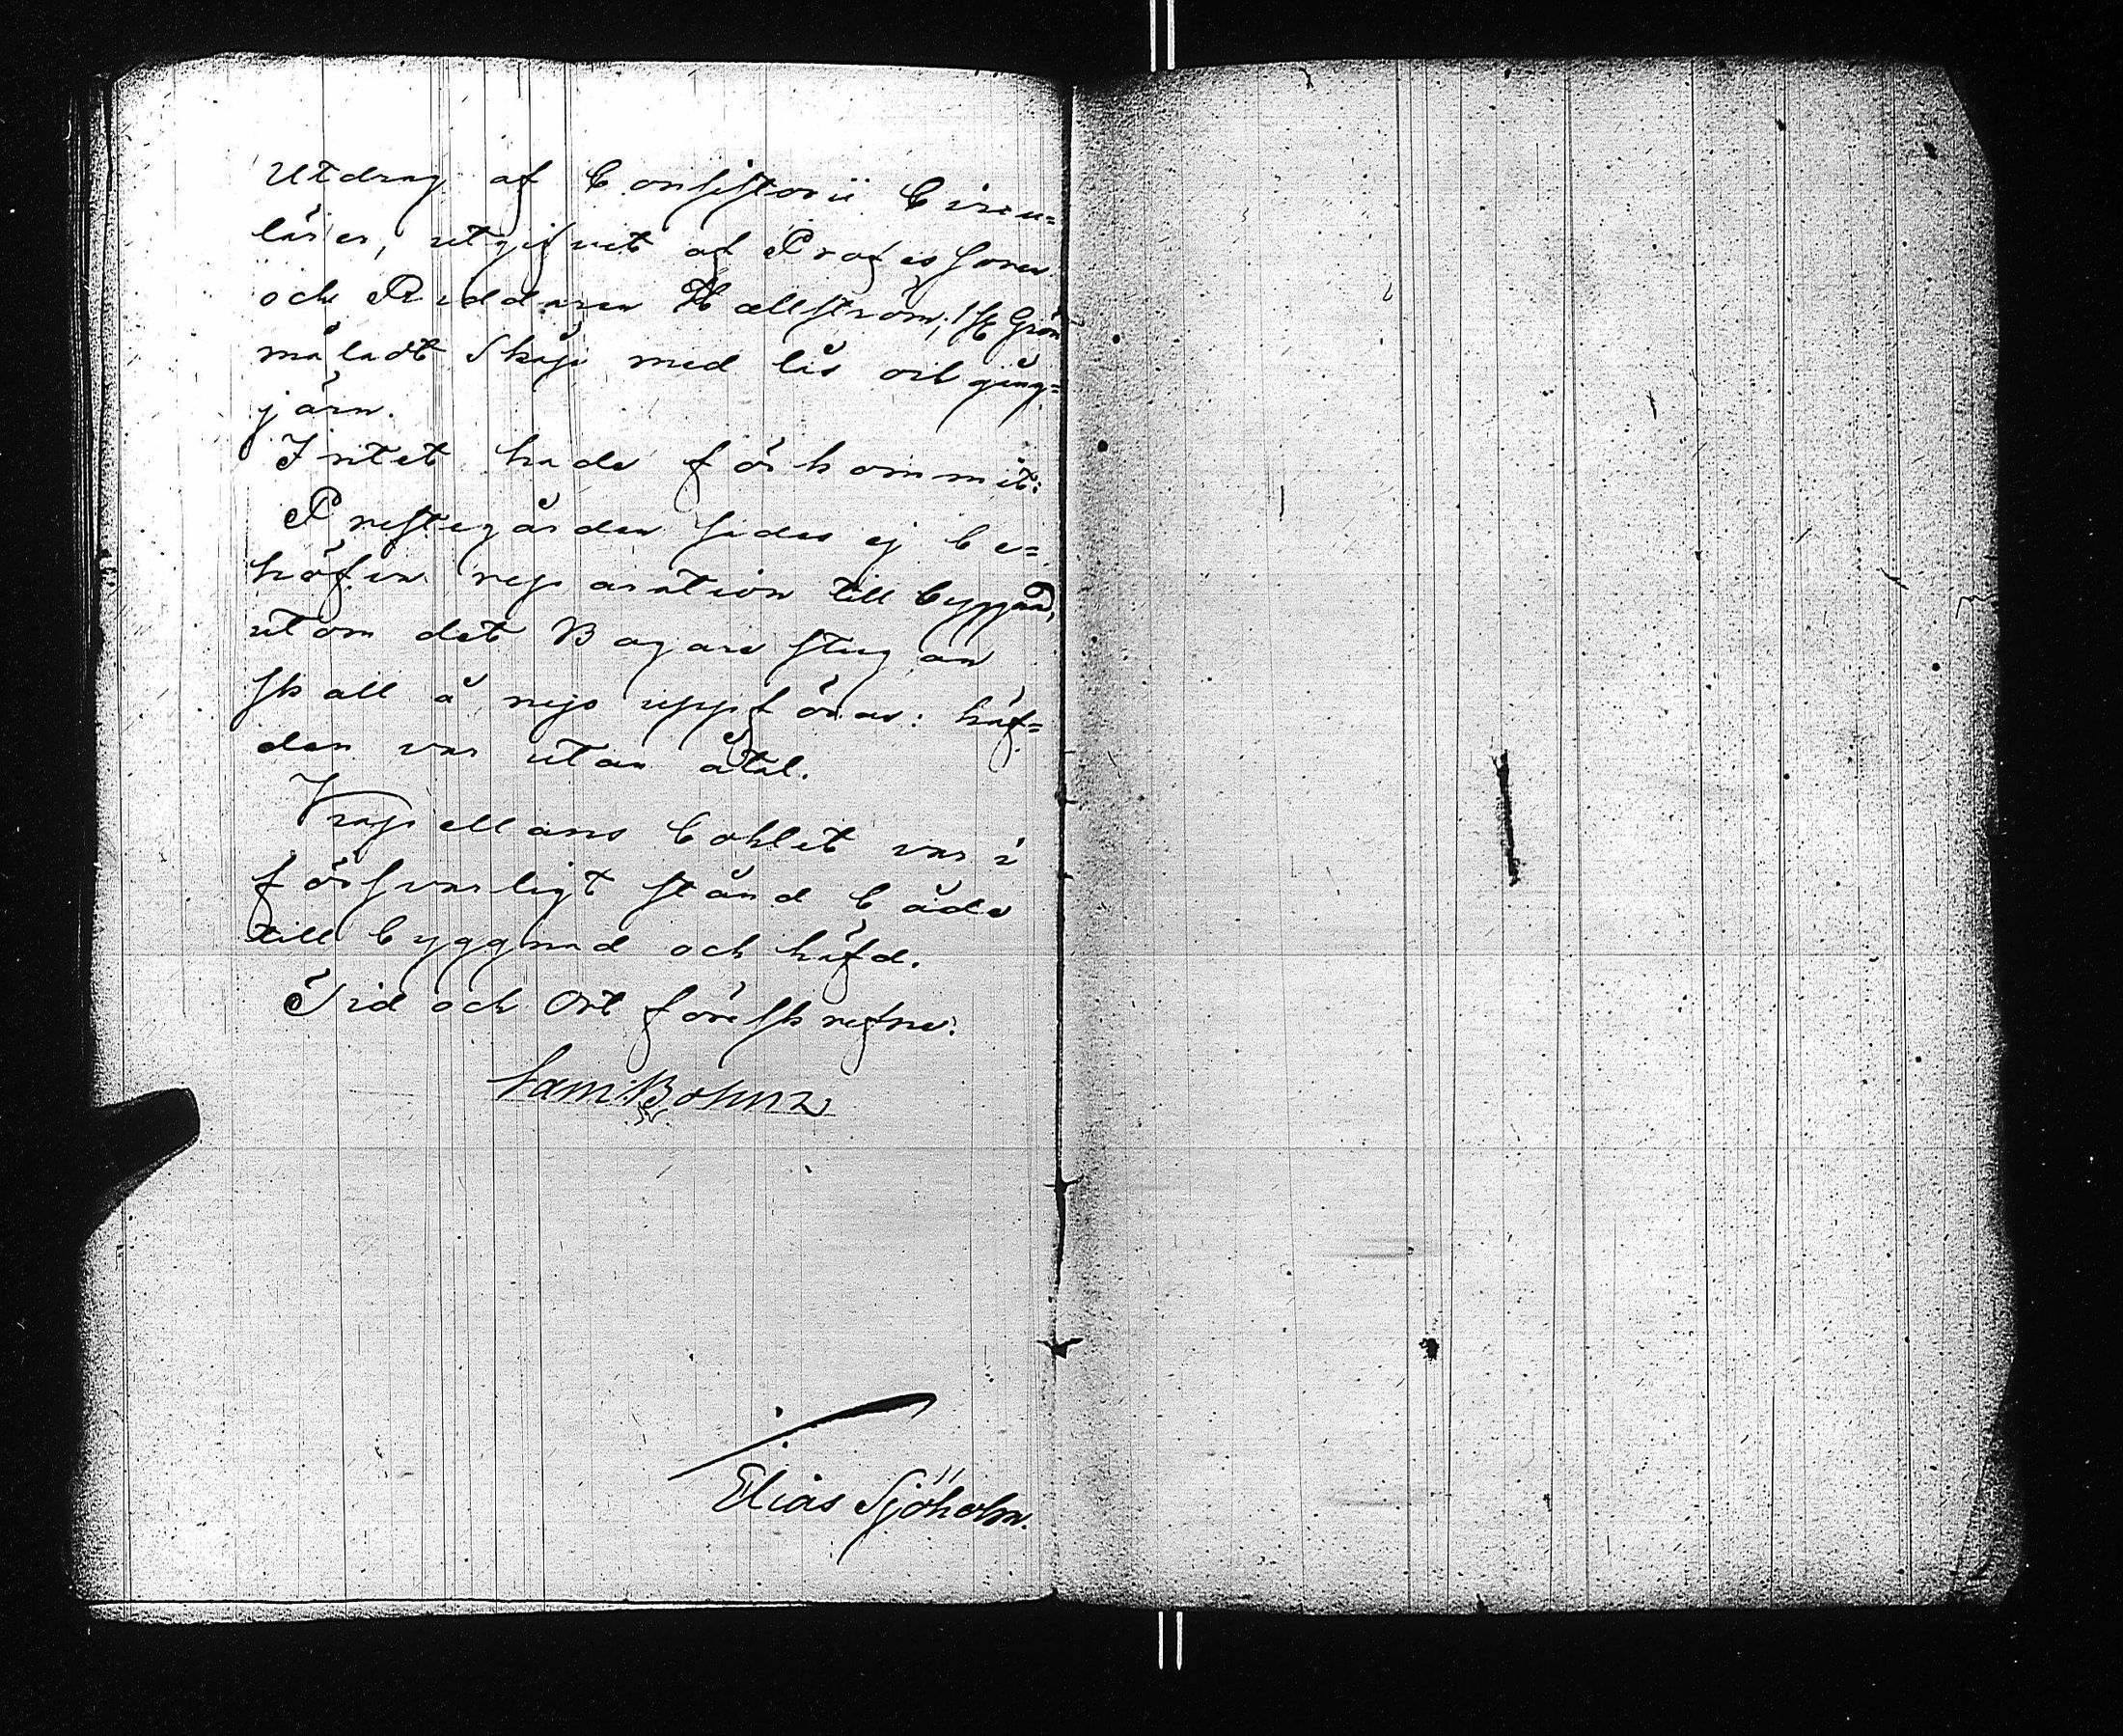 Utdrag af Consistorii Circu=
lärer, utgifvet af Professoren
och Riddaren Hællström; 1 st Grön
måladt Skåp med lås och gång=
järn.
Intet hade förkommit:
Prestegården syntes ej be=
höfva reparation till byggnad,
utom det Bagarestugan
skall å nyo uppföras: häf=
den var utan åtal.
Kapellans bohlet var i
försvarligt stånd både
till byggnad och häfd.
Tid och Ort föreskrefne.
Elias Sjöholm.